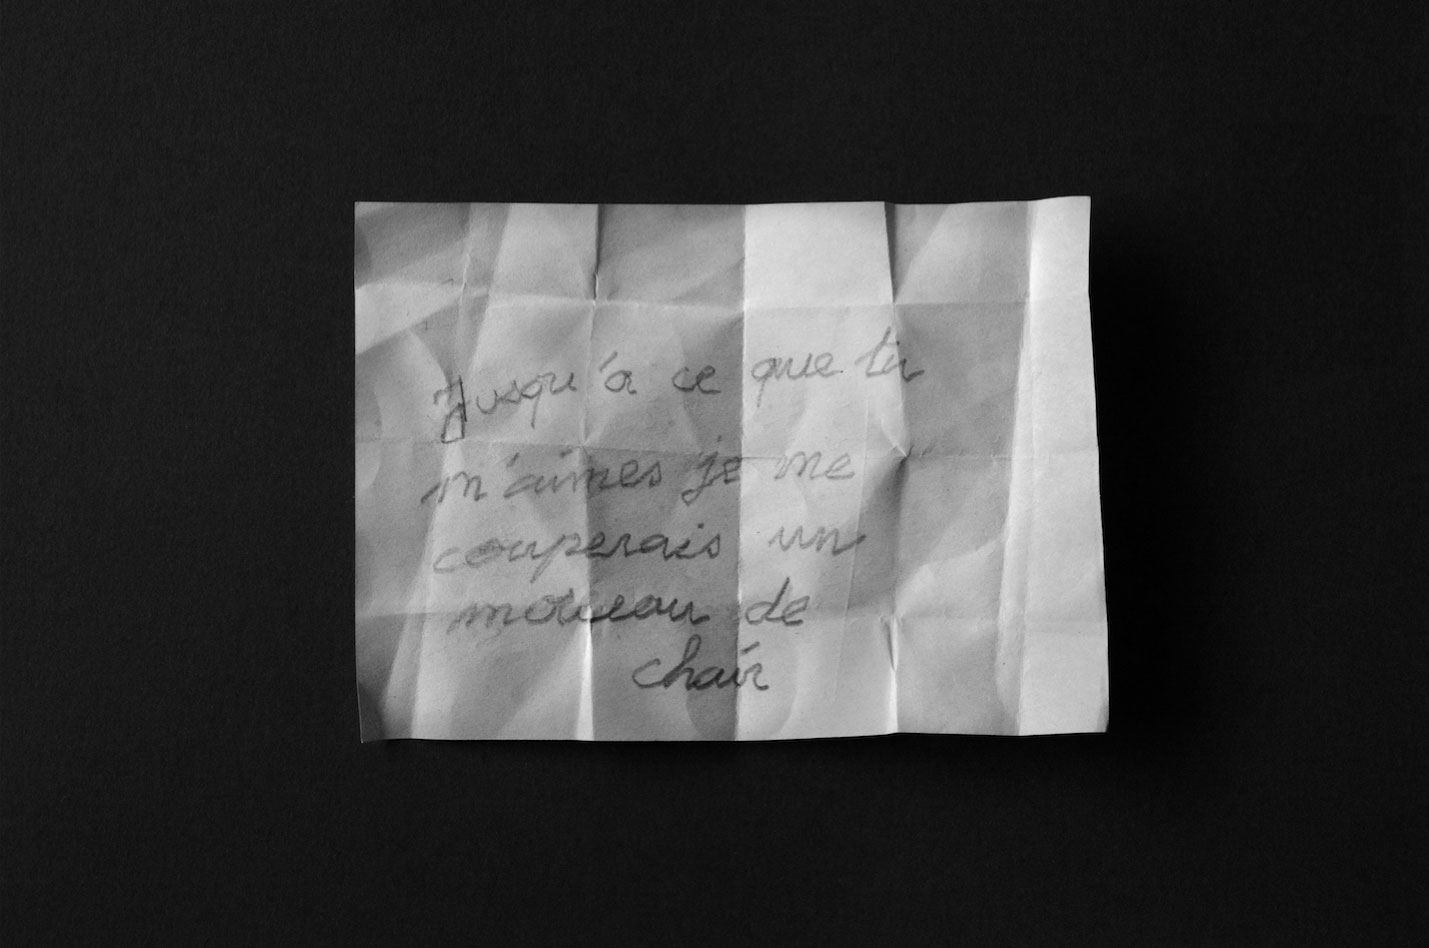 Jusqu'à ce que tu
m'aimes je me
couperais un
morceau de
chair